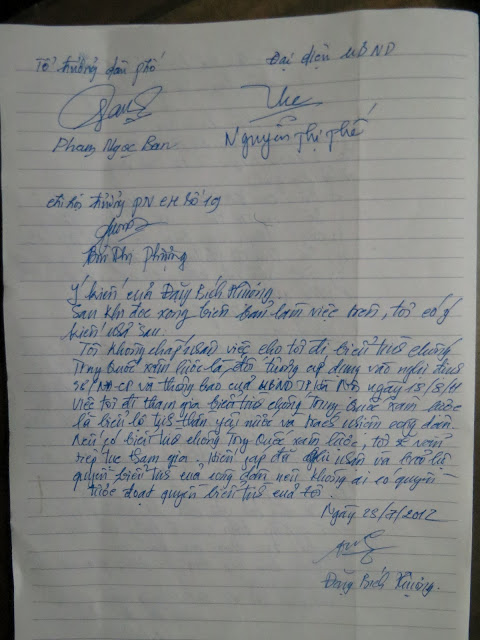 Tổ trưởng dân phố Đại diện UBND
Phạm Ngọc Ban Nguyễn Thị Thế
Chi hội trưởng PN CH số 19
Bùi Thị Phượng
Ý kiến của Đặng Bích Phượng
Sau khi đọc xong biên bản làm việc trên, tôi có ý
kiến như sau.
Tôi không chấp nhận việc cho tôi đi biểu tình chống
Trung Quốc xâm lược là đối tượng áp dụng vào nghị định
38/NĐ-CP và thông báo của UBND TP Hà Nội ngày 18/8/11
Việc tôi đi tham gia biểu tình chống Trung Quốc xâm lược
là biểu lộ tinh thần yêu nước và trách nhiệm công dân.
Nếu có biểu tình chống Trung Quốc xâm lược, tôi sẽ vẫn
tiếp tục tham gia. Hiến pháp đã ghi nhận và bảo vệ
quyền biểu tình của công dân nên không ai có quyền
tước đoạt quyền biểu tình của tôi.
Ngày 23/7/2012
Đặng Bích Phượng.